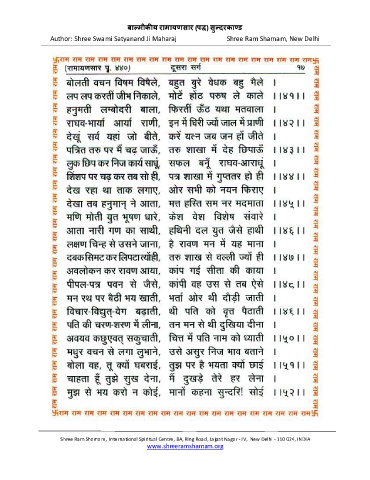 बाल्मीकीय रामायणसार (पद्य) सुन्दरकाण्ड
Author: Shree Swami Satyanand Ji Maharaj Shree Ram Sharnam, New Delhi
卐राम राम राम राम राम राम राम राम राम राम राम राम राम राम राम राम राम राम राम卐
(रामायणसार पृ. ४४०) दूसरा सर्ग १७
बोलती वचन विषम विषैले, बहुत बुरे वेधक बहु मैले ।
लप लप करती जीभ निकाले, मोटे होंठ परुष ले काले ।।४१।।
हनुमती लम्बोदरी बाला, फिरतीं ऊँठ यथा मतवाला ।
राघव-भार्या आर्या राणी, इन में घिरी ज्यों जाल में प्राणी ।।४२।।
देखूं सर्व यहां जो बीते, करें यत्न जब जन हों जीते ।
पत्रित तरु पर मैं चढ़ जाऊँ, तरु शाखा में देह छिपाऊँ ।।४३।।
लुक छिप कर निज कार्य साधूं, सफल बनूँ राघव-आराधूं ।
शिंशप पर चढ़ कर तब सो ही, पत्र शाखा में गुप्ततर हो ही ।।४४।।
देख रहा था ताक लगाए, ओर सभी को नयन फिराए ।
देखा तब हनुमान् ने आता, मत्त हस्ति सम नर मदमाता ।।४५।।
मणि मोती युत भूषण धारे, केश वेश विशेष संवारे ।
आता नारी गण का साथी, हथिनी दल युत जैसे हाथी ।।४६।।
लक्षण चिन्ह से उसने जाना, है रावण मन में यह माना ।
दबक सिमट कर लिपटा त्योंही, तरु शाख से वल्ली ज्यों ही ।।४७।।
अवलोकन कर रावण आया, कांप गई सीता की काया ।
पीपल-पत्र पवन से जैसे, कांपी वह उस से तब ऐसे ।।४८।।
मन रथ पर बैठी भय खाती, भर्ता ओर थी दौड़ी जाती ।
विचार-विद्युत्-वेग बढ़ाती, थी पति को वृत्त पैठाती ।।४९।।
पति की चरण-शरण में लीना, तन मन से थी दुखिया दीना ।
अवयव कछुएवत् सकुचाती, चित्त में पति नाम को ध्याती ।।५०।।
मधुर वचन से लगा लुभाने, उसे असुर निज भाव बताने ।
बोला वह, तू क्यों घबराई, तुझ पर है भयता क्यों छाई ।।५१।।
चाहता हूँ तुझे सुख देना, मैं दुखड़े तेरे हर लेना ।
मुझ से भय करो न कोई, मानों कहना सुन्दरि! सोई ।।५२।।
卐राम राम राम राम राम राम राम राम राम राम राम राम राम राम राम राम राम राम राम卐
Shree Ram Sharnam, International Spiritual Centre, 8A, Ring Road, Lajpat Nagar - IV, New Delhi - 110 024, INDIA
www.shreeramsharnam.org